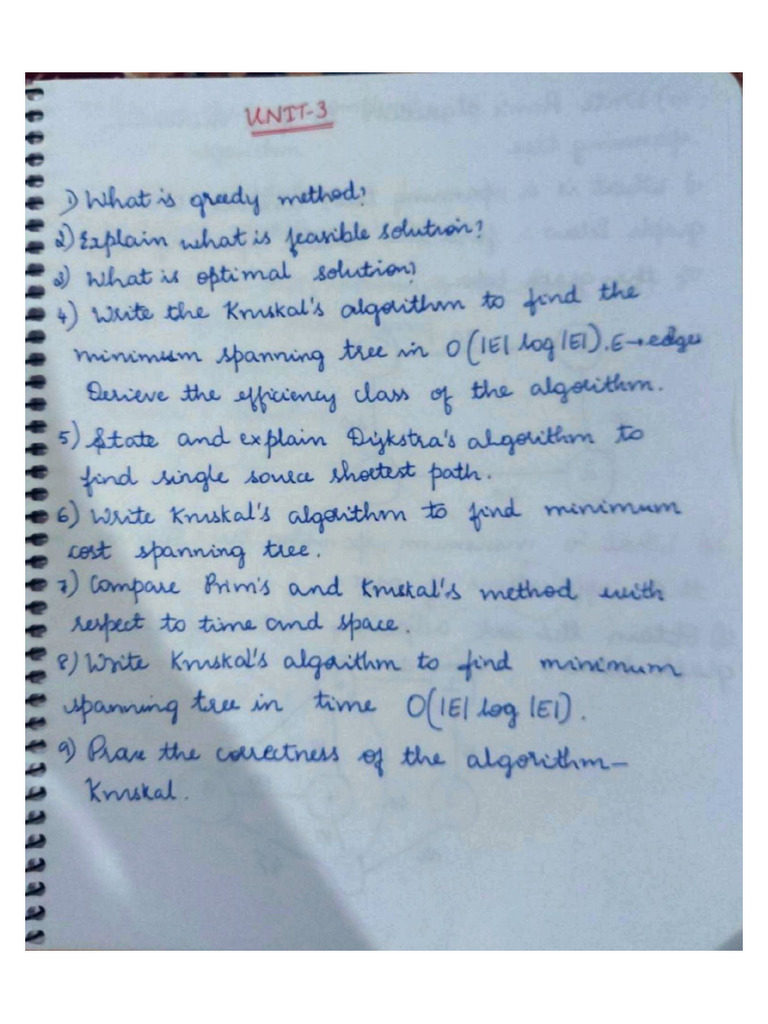 UNIT-3
1) What is greedy method?
2) Explain what is feasible solution?
3) What is optimal solution?
4) Write the Kruskal's algorithm to find the
minimum spanning tree in O(|E| log |E|). E→edges
Derieve the efficiency class of the algorithm.
5) State and explain Dijkstra's algorithm to
find single source shortest path.
6) Write Kruskal's algorithm to find minimum
cost spanning tree.
7) Compare Prim's and Kruskal's method with
respect to time and space.
8) Write Kruskal's algorithm to find minimum
spanning tree in time O(|E| log |E|).
9) Prove the correctness of the algorithm-
Kruskal.